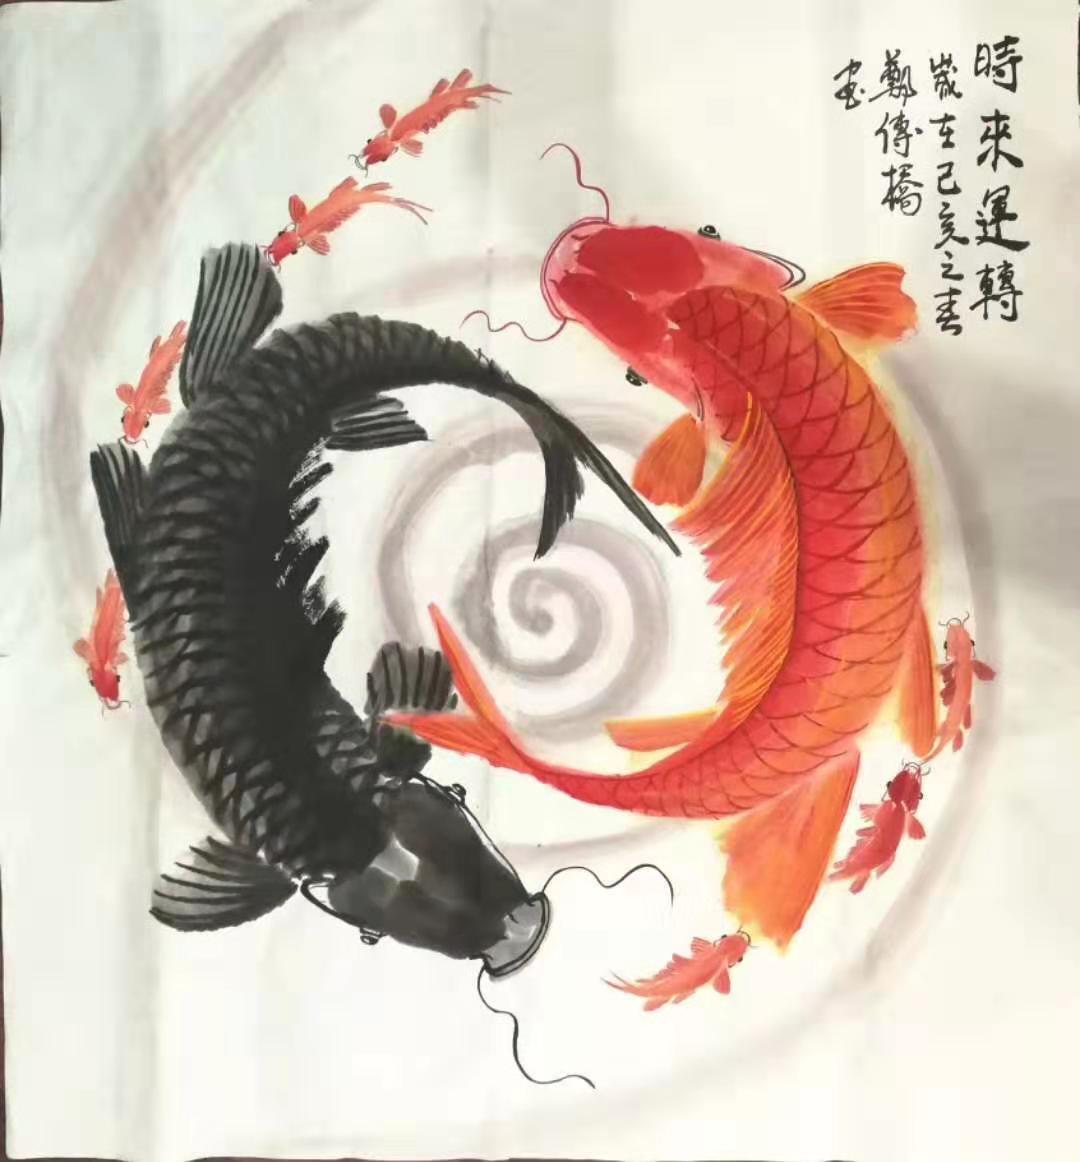 時來運轉
歲在己亥之春
鄭傳橋
画